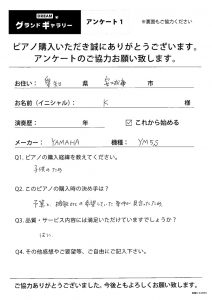 グランドギャラリー
アンケート1
※裏面もご協力ください
ピアノ購入いただき誠にありがとうございます。
アンケートのご協力お願い致します。
お住い： 愛知 県 市
お名前(イニシャル)： K 様
演奏歴： 年 ☑ これから始める
メーカー： YAMAHA 機種： YM5S
Q1. ピアノの購入経緯を教えてください。
子供のため
Q2. このピアノの購入時の決め手は？
予算と、調律士の希望としていた条件に見合ったため
Q3. 品質・サービス内容には満足いただけていますでしょうか？
はい。
Q4. その他感想やご要望等、ご自由にご記入下さい。
ご協力ありがとうございました。今後ともよろしくお願い致します。